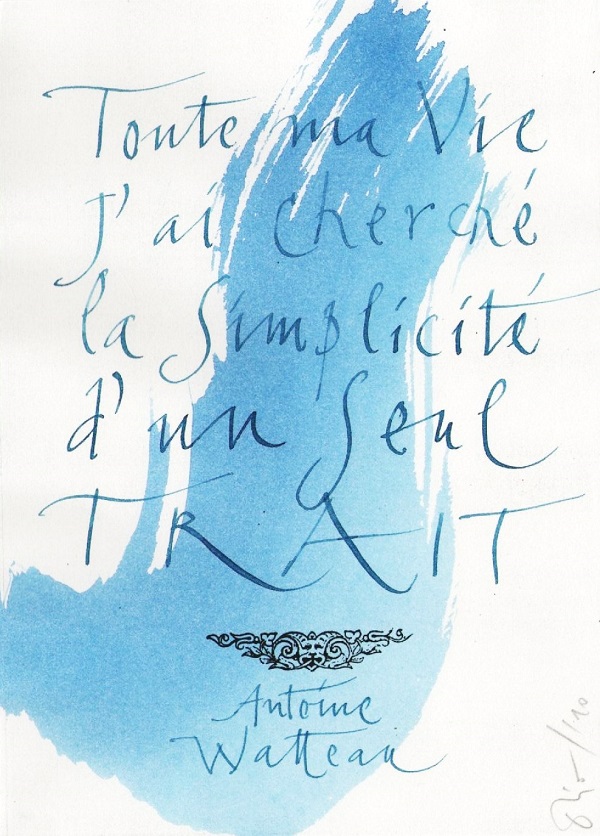 Toute ma Vie
J'ai cherché
la simplicité
d'un seul
TRAIT
Antoine
Watteau